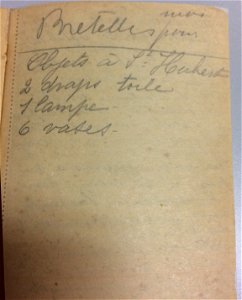 moi
Bretelles pour
Objets à St Hubert
2 draps toile
1 lampe
6 vases